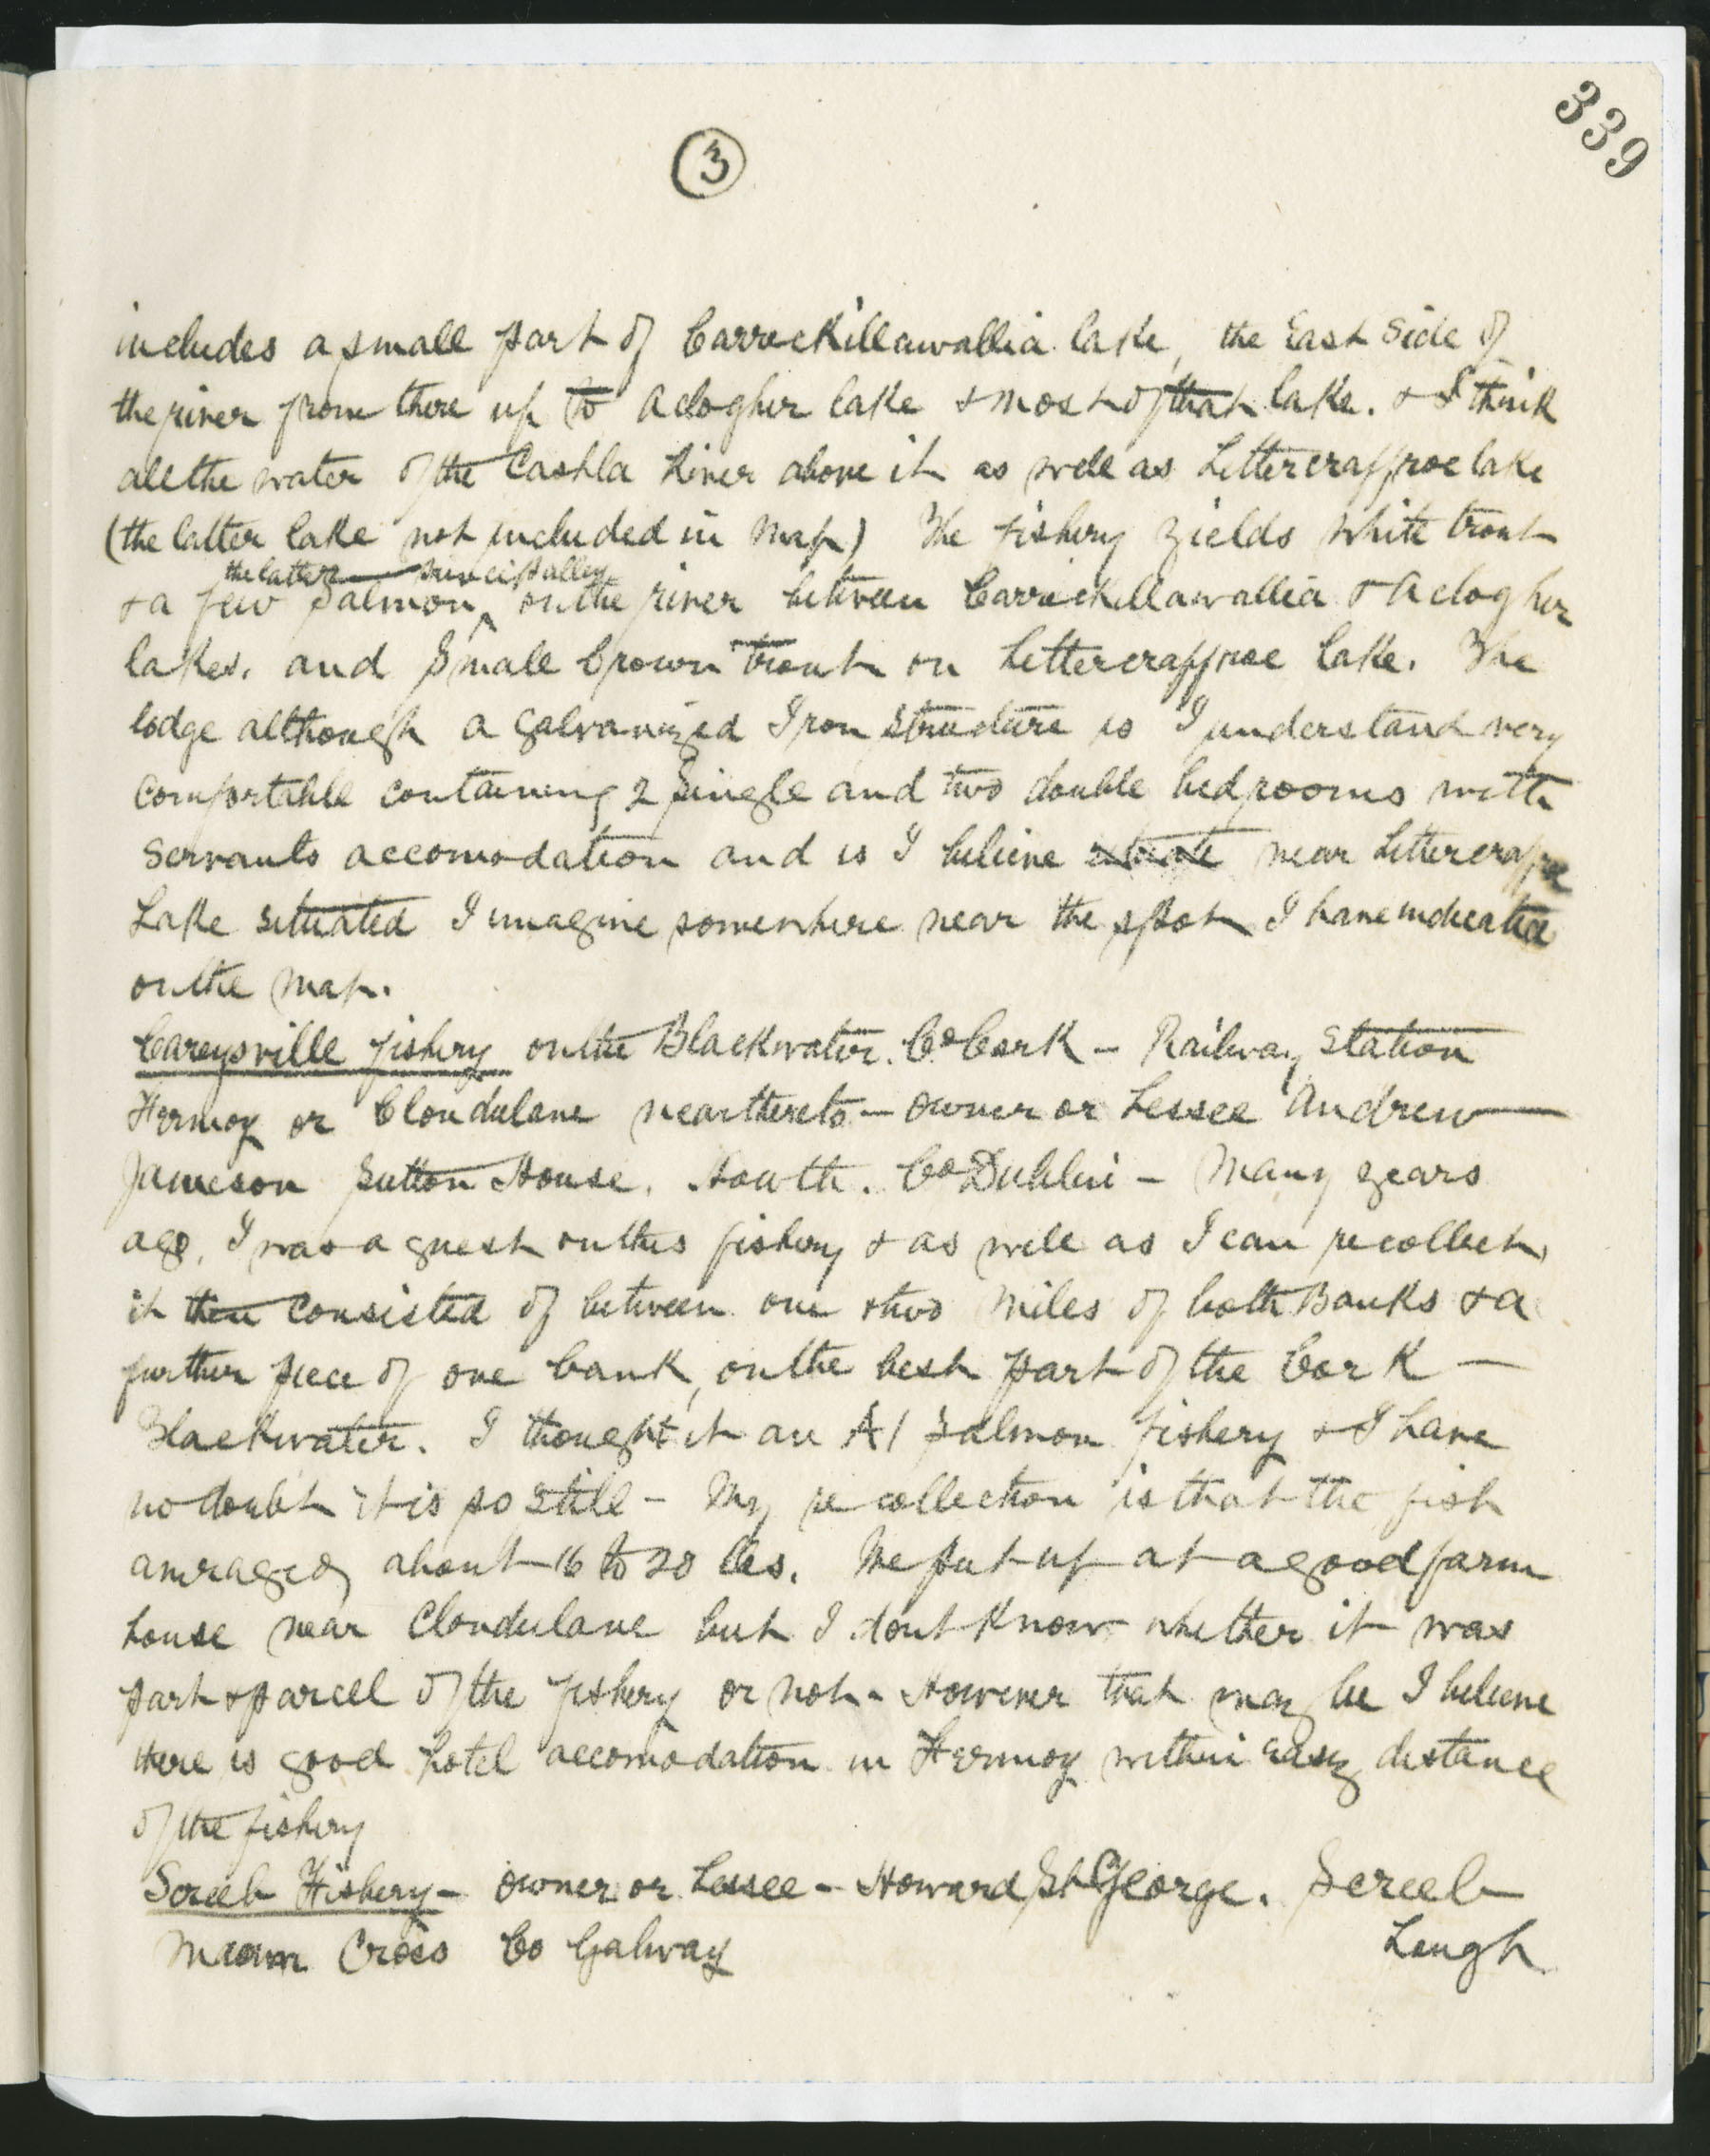 339
3
includes a small part of Carrickillawallia lake, the East Side of
the river from there up to Aclogher lake & most of that lake. & I think
all the water of the Cashla River above it as well as Lettercraffroe lake
(the latter lake not included in Map) The fishery yields white trout
the latter principally
& a few Salmon, on the river between Carrickillawallia & Aclogher
lakes. and Small brown trout on Lettercraffroe lake. The
lodge although a galvanized Iron structure is I understand very
comfortable containing 2 Single and two double bedrooms with
Servants accomodation and is I believe near Lettercraffroe
Lake situated I imagine somewhere near the spot I have indicated
on the Map.
Careysville fishery on the Blackwater. Co Cork - Railway Station
Fermoy or Clondulane near thereto - owner or Lessee Andrew
Jameson Sutton House. Howth. Co Dublin - Many years
ago, I was a guest on this fishery & as well as I can recollect,
it then consisted of between one & two miles of both Banks & a
further piece of one bank, on the best part of the Cork
Blackwater. I thought it an A1 Salmon fishery & I have
no doubt it is so still - My recollection is that the fish
averaged about 16 to 20 lbs. We put up at a good farm
house near Clondulane but I dont know whether it was
part & parcel of the fishery or not - However that may be I believe
there is good hotel accomodation in Fermoy within easy distance
of the fishery
Screeb Fishery - owner or Lessee - Howard St George. Screeb
Maam Cross Co Galway Lough